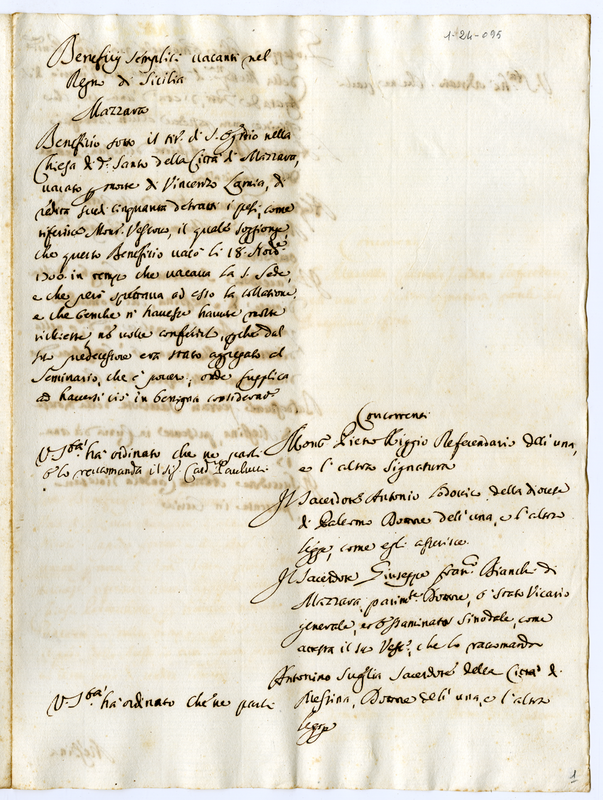 1-24-095
Benefici semplici vacanti nel
Regno di Sicilia
Mazzara
Beneficio sotto il tit.º di S. Egidio nella
Chiesa di d.º Santo della Città di Mazzara,
vacato p morte di Vincenzo Lamia, di
rédita scudi cinquanta detratti i pesi, come
riferisce Mons.r Vescovo, il quale soggionge,
che questo Beneficio vacò li 18. Nov.re
1700 in tempo che vacava la S. Sede,
e che però spettava ad esso la collatione,
e che benche n' havesse havute molte
richieste, nõ volle conferirlo, pche dal
suo predecessore era stato aggregato al
Seminario, che è povero; onde supplica
ad haversi ciò in benigna consideratn.e
V. S.tà ha ordinato che ne parli
e lo raccomanda il sig.r Card. Paulucci
Concorrenti
Mons.r Pietro Riggio Referendario dell'una,
e l'altra Signatura
Il Sacerdote Antonio Lodovico della diocesi
di Palermo Dottore dell'una, e l'altra
legge, come egli asserisce.
Il Sacerdote Giuseppe Fran.co Bianchi di
Mazzara parim.te Dottore, è stato Vicario
generale, et Essaminatore Sinodale, come
attesta il suo Vesc.º, che lo raccomanda
Antonino Suglia Sacerdote della Città di
Messina, Dottore dell'una, e l'altra
legge
V. S.tà ha ordinato che ne parli
1